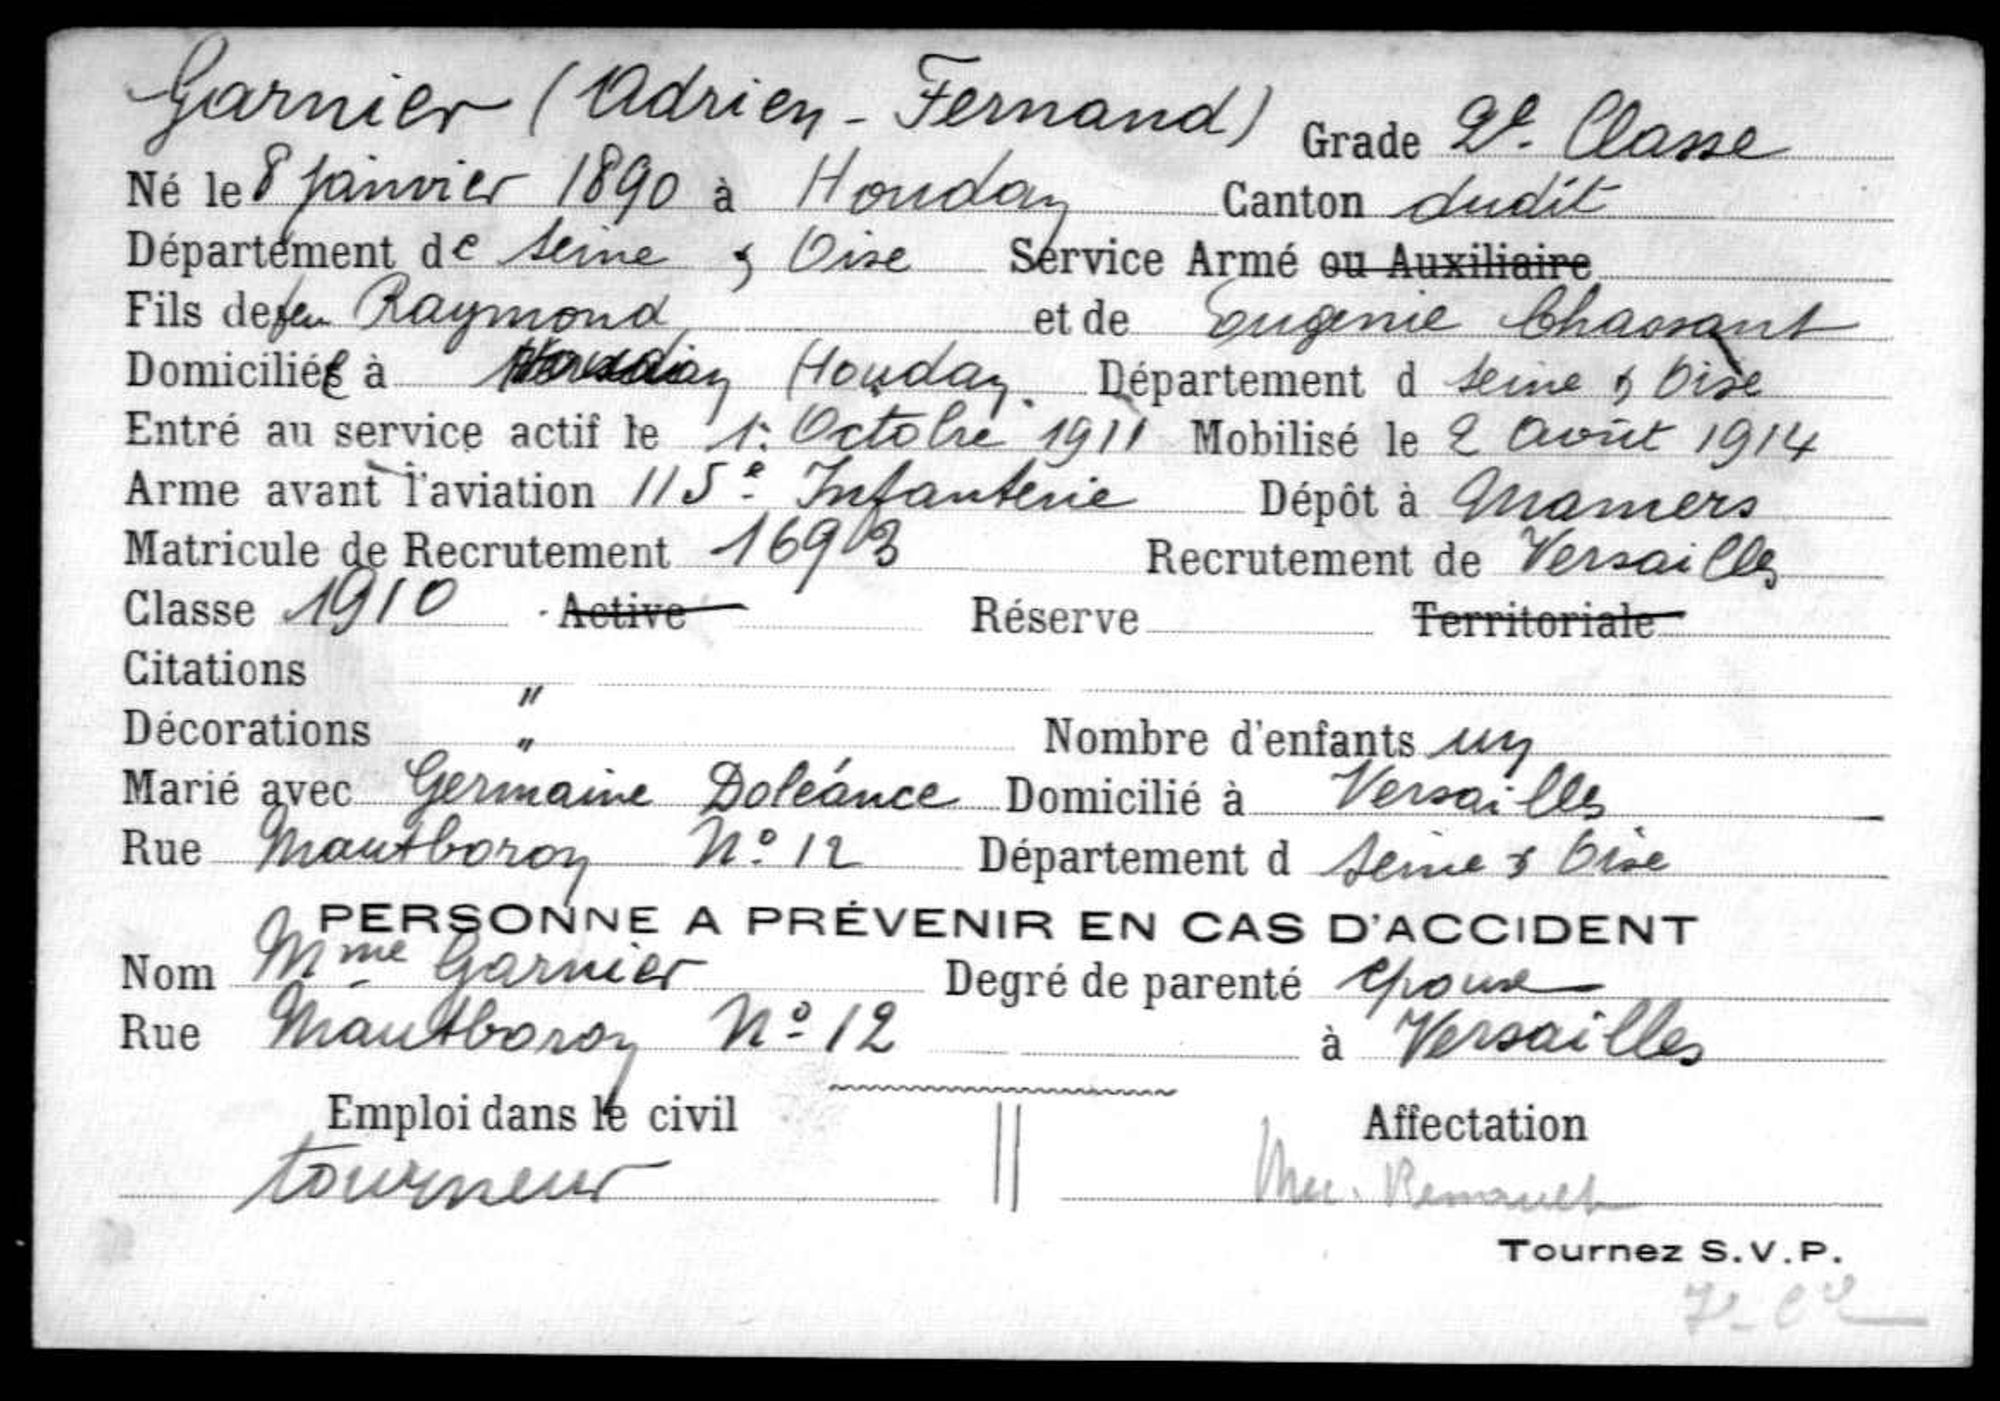 Garnier (Adrien - Fernand) Grade 2e. Classe
Né le 8 Janvier 1890 à Houdan Canton dudit
Département de Seine & Oise Service Armé ou Auxiliaire
Fils de feu Raymond et de Eugenie Chassant
Domiciliés à Houdan Houdan. Département d Seine & Oise
Entré au service actif le 1r. Octobre 1911 Mobilisé le 2 Août 1914
Arme avant l'aviation 115e. Infanterie Dépôt à Mamers
Matricule de Recrutement 1693 Recrutement de Versailles
Classe 1910 Active Réserve Territoriale
Citations "
Décorations " Nombre d'enfants un
Marié avec Germaine Doléance Domicilié à Versailles
Rue Mautboron No. 12 Département d Seine & Oise
PERSONNE A PRÉVENIR EN CAS D'ACCIDENT
Nom Mme Garnier Degré de parenté epouse
Rue Mautboron No 12 à Versailles
Emploi dans le civil Affectation
tourneur Mec. Renault
Tournez S.V.P.